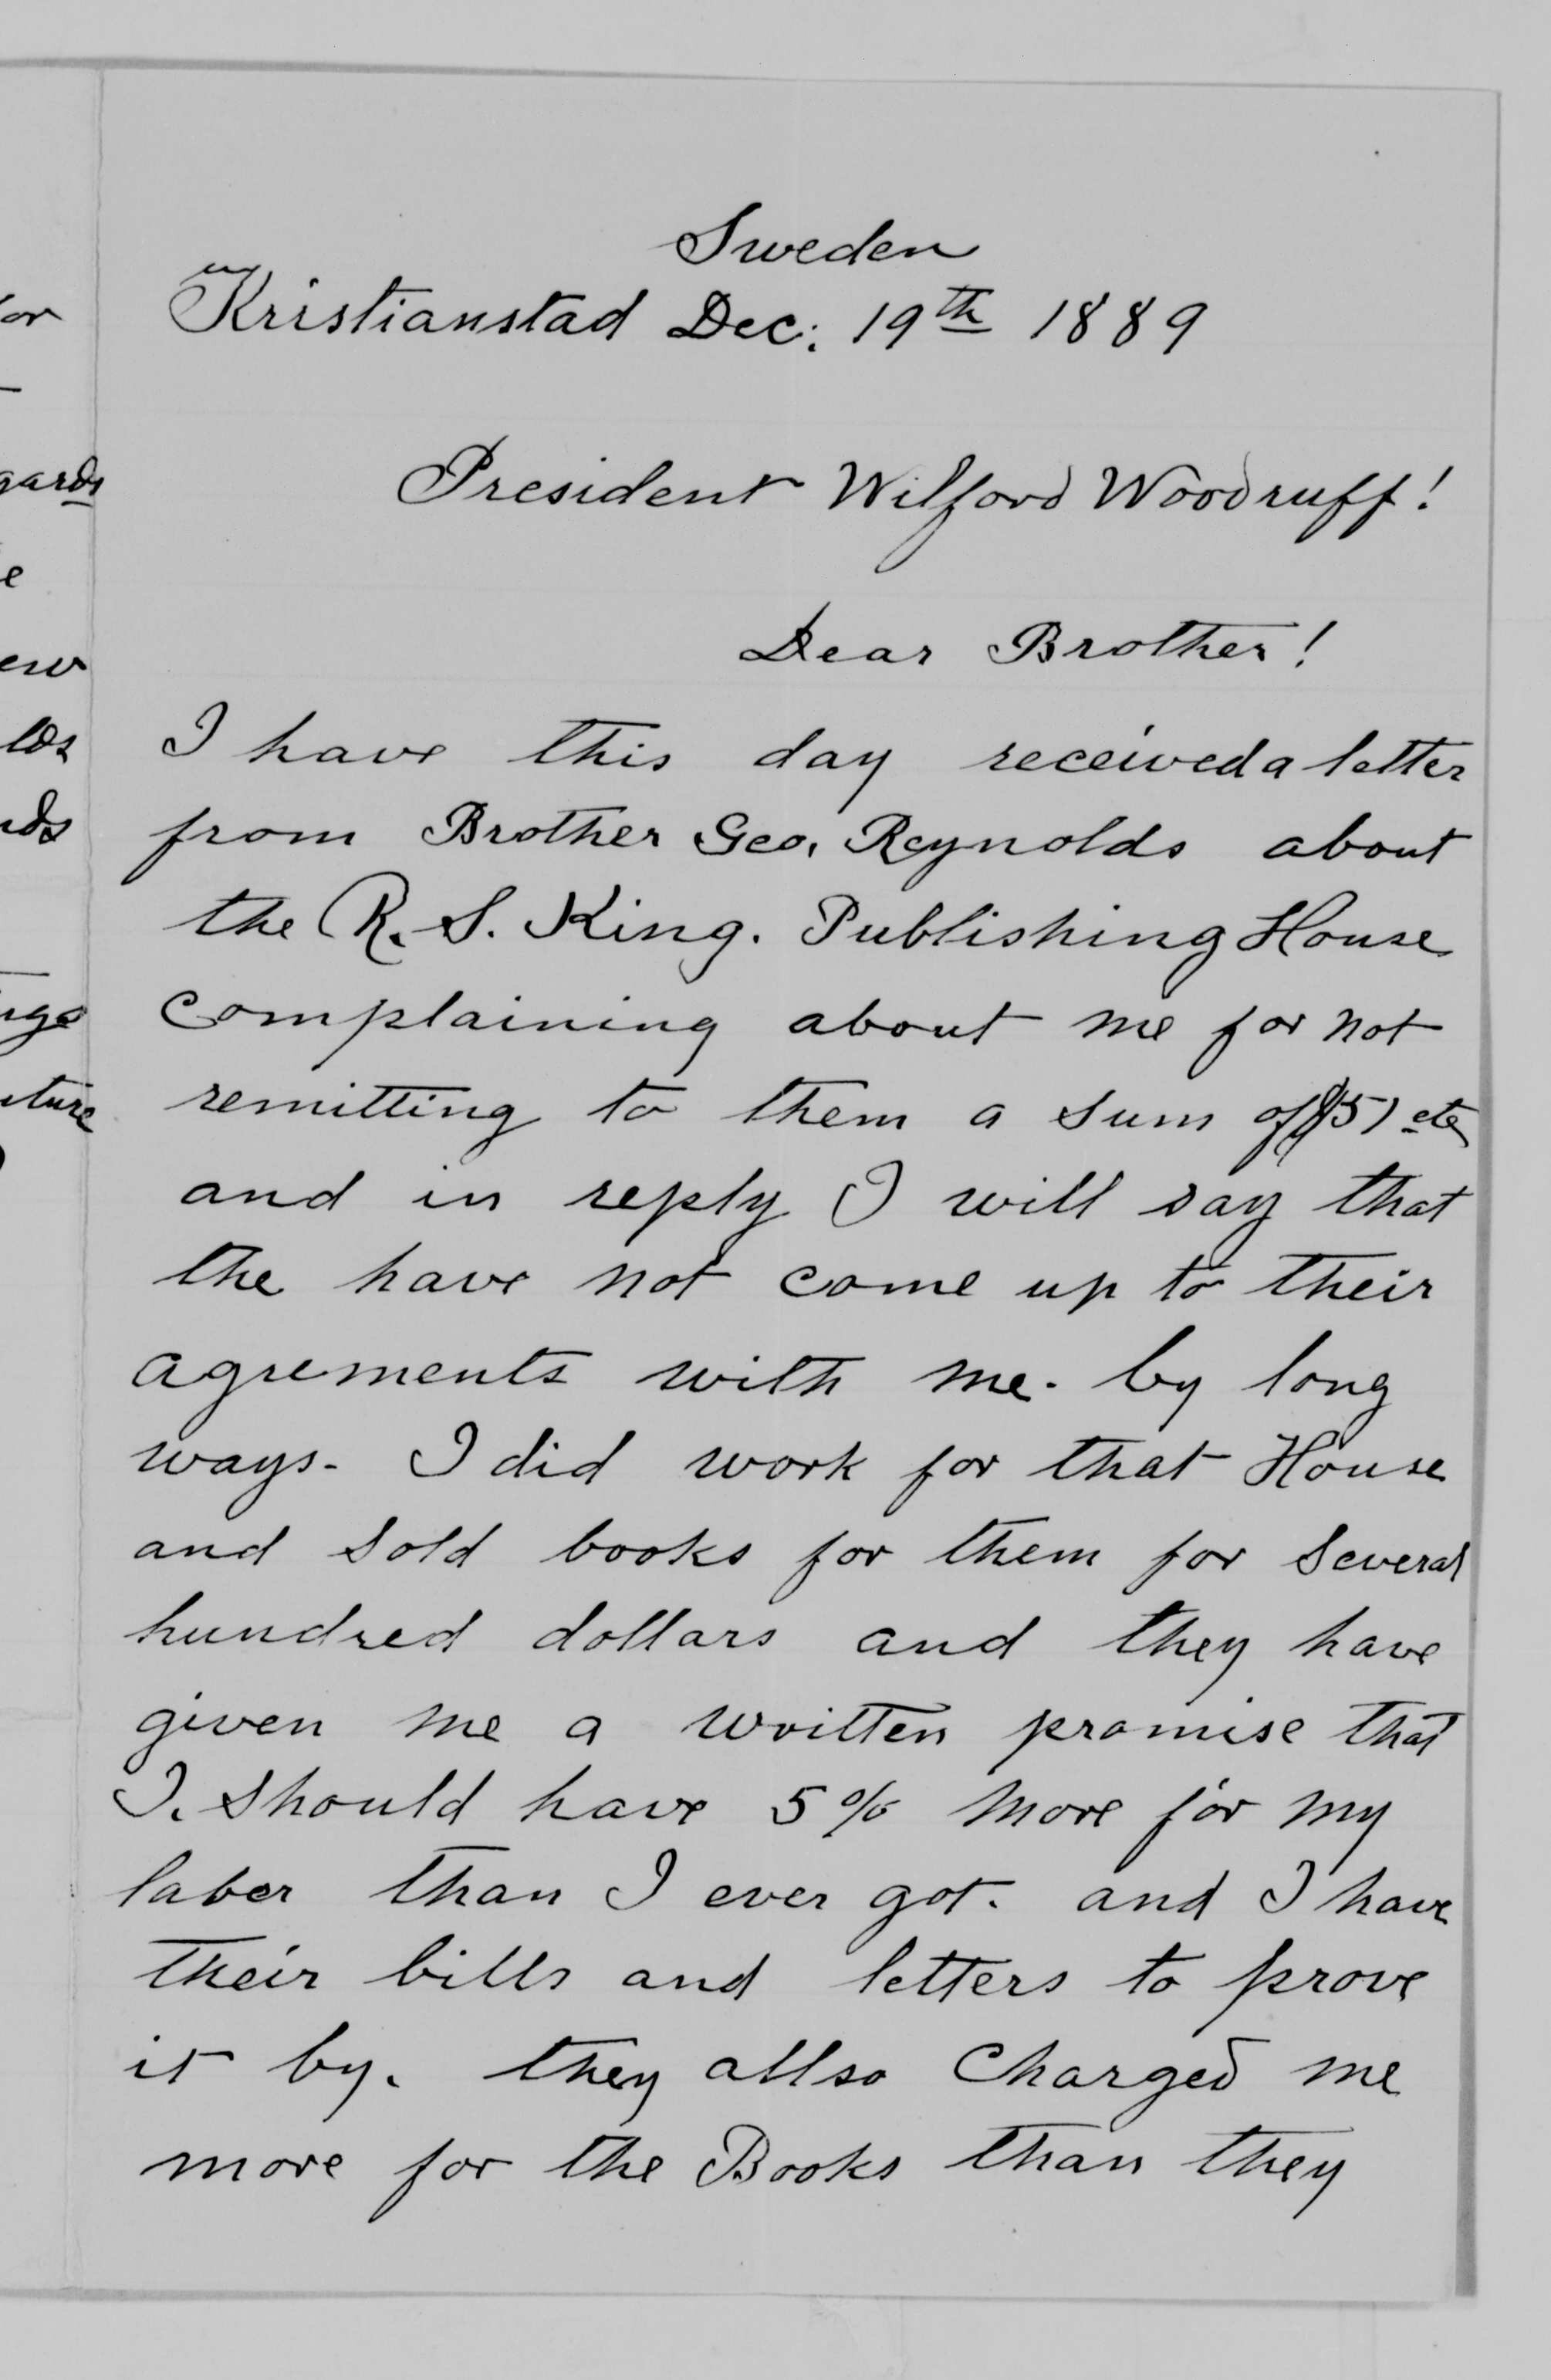 Sweden
Kristianstad Dec: 19th 1889
President Wilford Woodruff!
Dear Brother!
I have this day received a letter
from Brother Geo. Reynolds about
the R. S. King. Publishing House
complaining about me for not
remitting to them a sum of
and in reply I will say that
the have not come up to their
agrements with me. by long
ways - I did work for that House
and sold books for them for several
hundred dollars and they have
given me a written promise that
I. should have 5% more for my
laber than I ever got. and I have
their bills and letters to prove
it by. they allso charged me
more for the Books than they